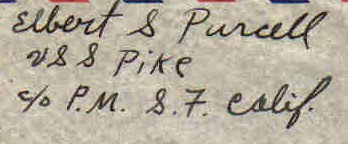 Elbert S Purcell
USS Pike
c/o P.M. S.F. Calif.